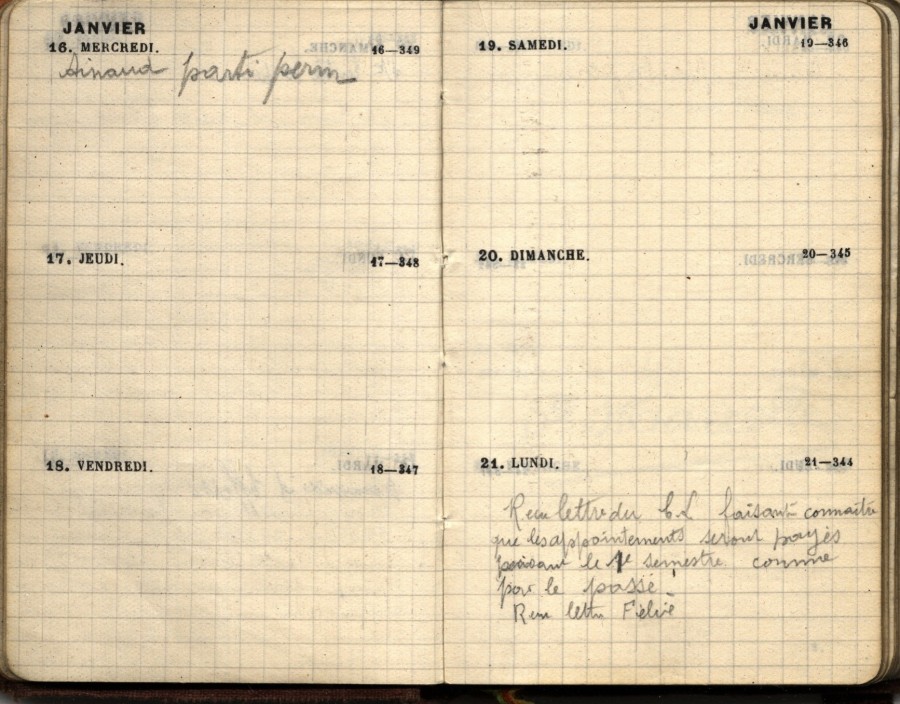 JANVIER
16. MERCREDI. 16—349
Ainaud parti perm
17. JEUDI. 17—348
18. VENDREDI. 18—347
JANVIER
19. SAMEDI. 19—346
20. DIMANCHE. 20—345
21. LUNDI. 21—344
Reçu lettre du C L faisant connaître
que les appointements seront payés
pendant le 1e semestre comme
par le passé.
Reçu lettre